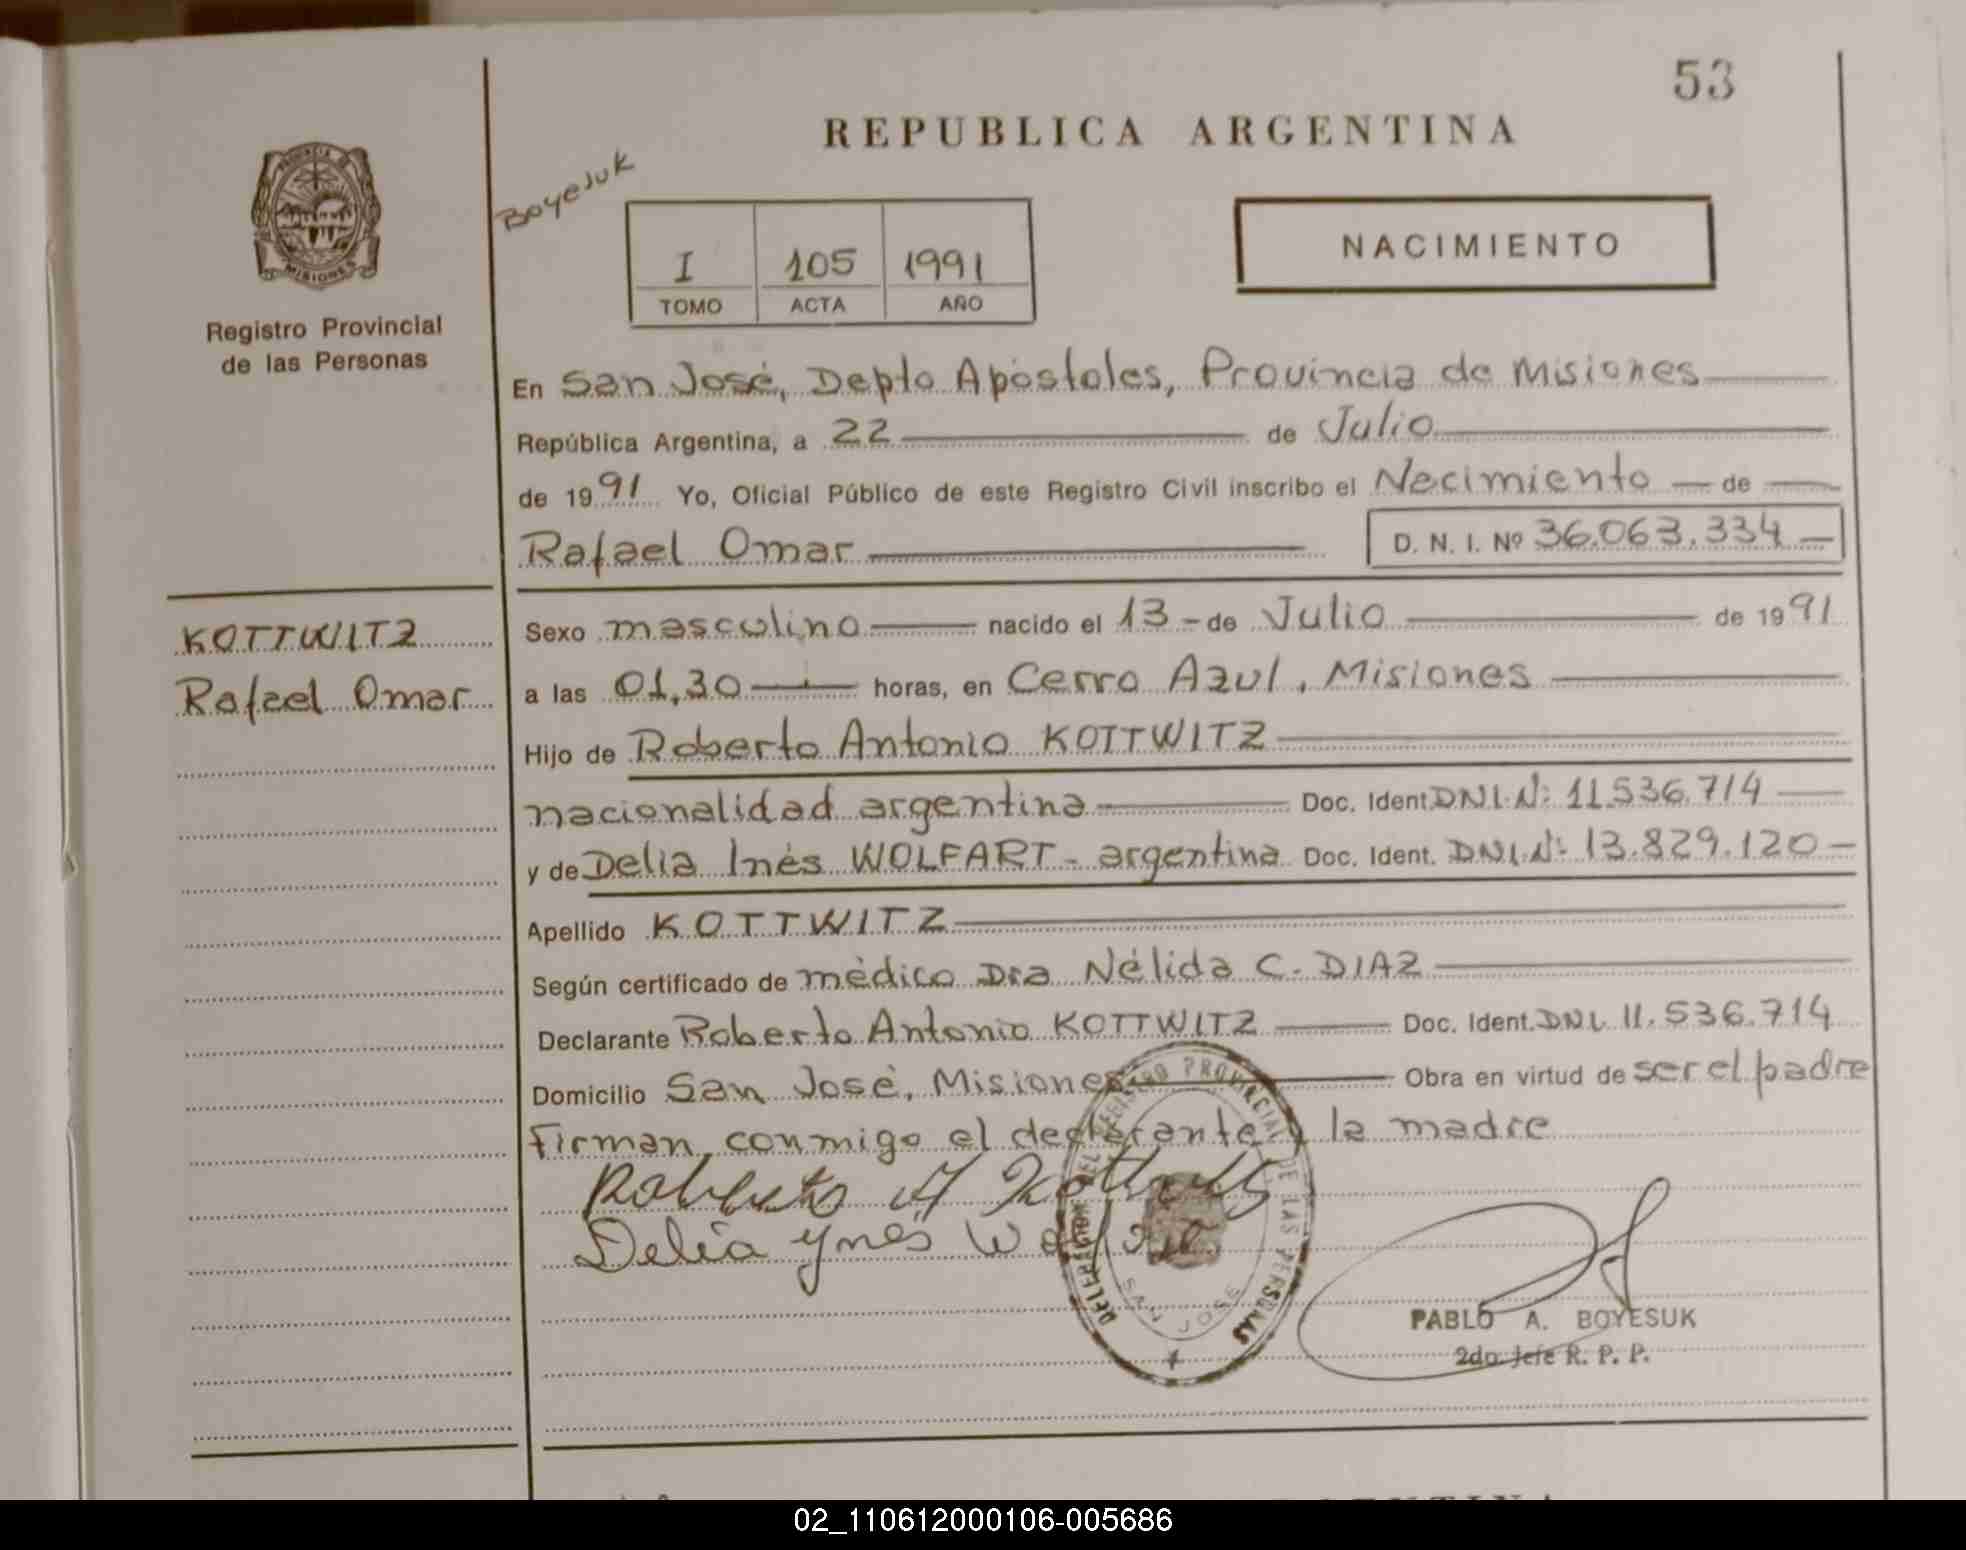 53
REPUBLICA ARGENTINA
PROVINCIA DE
MISIONES
Registro Provincial
de las Personas
Boyesuk
I 105 1991
TOMO ACTA AÑO
NACIMIENTO
En San José, Depto Apóstoles, Provincia de Misiones
República Argentina, a 22 de Julio
de 1991 Yo, Oficial Público de este Registro Civil inscribo el Nacimiento de
Rafael Omar D. N. I. Nº 36.063.334
KOTTWITZ
Rafael Omar
Sexo masculino nacido el 13 - de Julio de 1991
a las 01,30 horas, en Cerro Azul, Misiones
Hijo de Roberto Antonio KOTTWITZ
nacionalidad argentina Doc. Ident. DNI.Nº: 11.536.714
y de Delia Inés WOLFART - argentina Doc. Ident. DNI.Nº: 13.829.120
Apellido KOTTWITZ
Según certificado de médico Dra Nélida C. DIAZ
Declarante Roberto Antonio KOTTWITZ Doc. Ident. DNI. 11.536.714
Domicilio San José, Misiones Obra en virtud de ser el padre
Firman conmigo el declarante y la madre
Roberto A Kottwitz
Delia Ynés
DELEGACION DEL REGISTRO PROVINCIAL DE LAS PERSONAS
SAN JOSE
PABLO A. BOYESUK
2do. Jefe R. P. P.
02_110612000106-005686